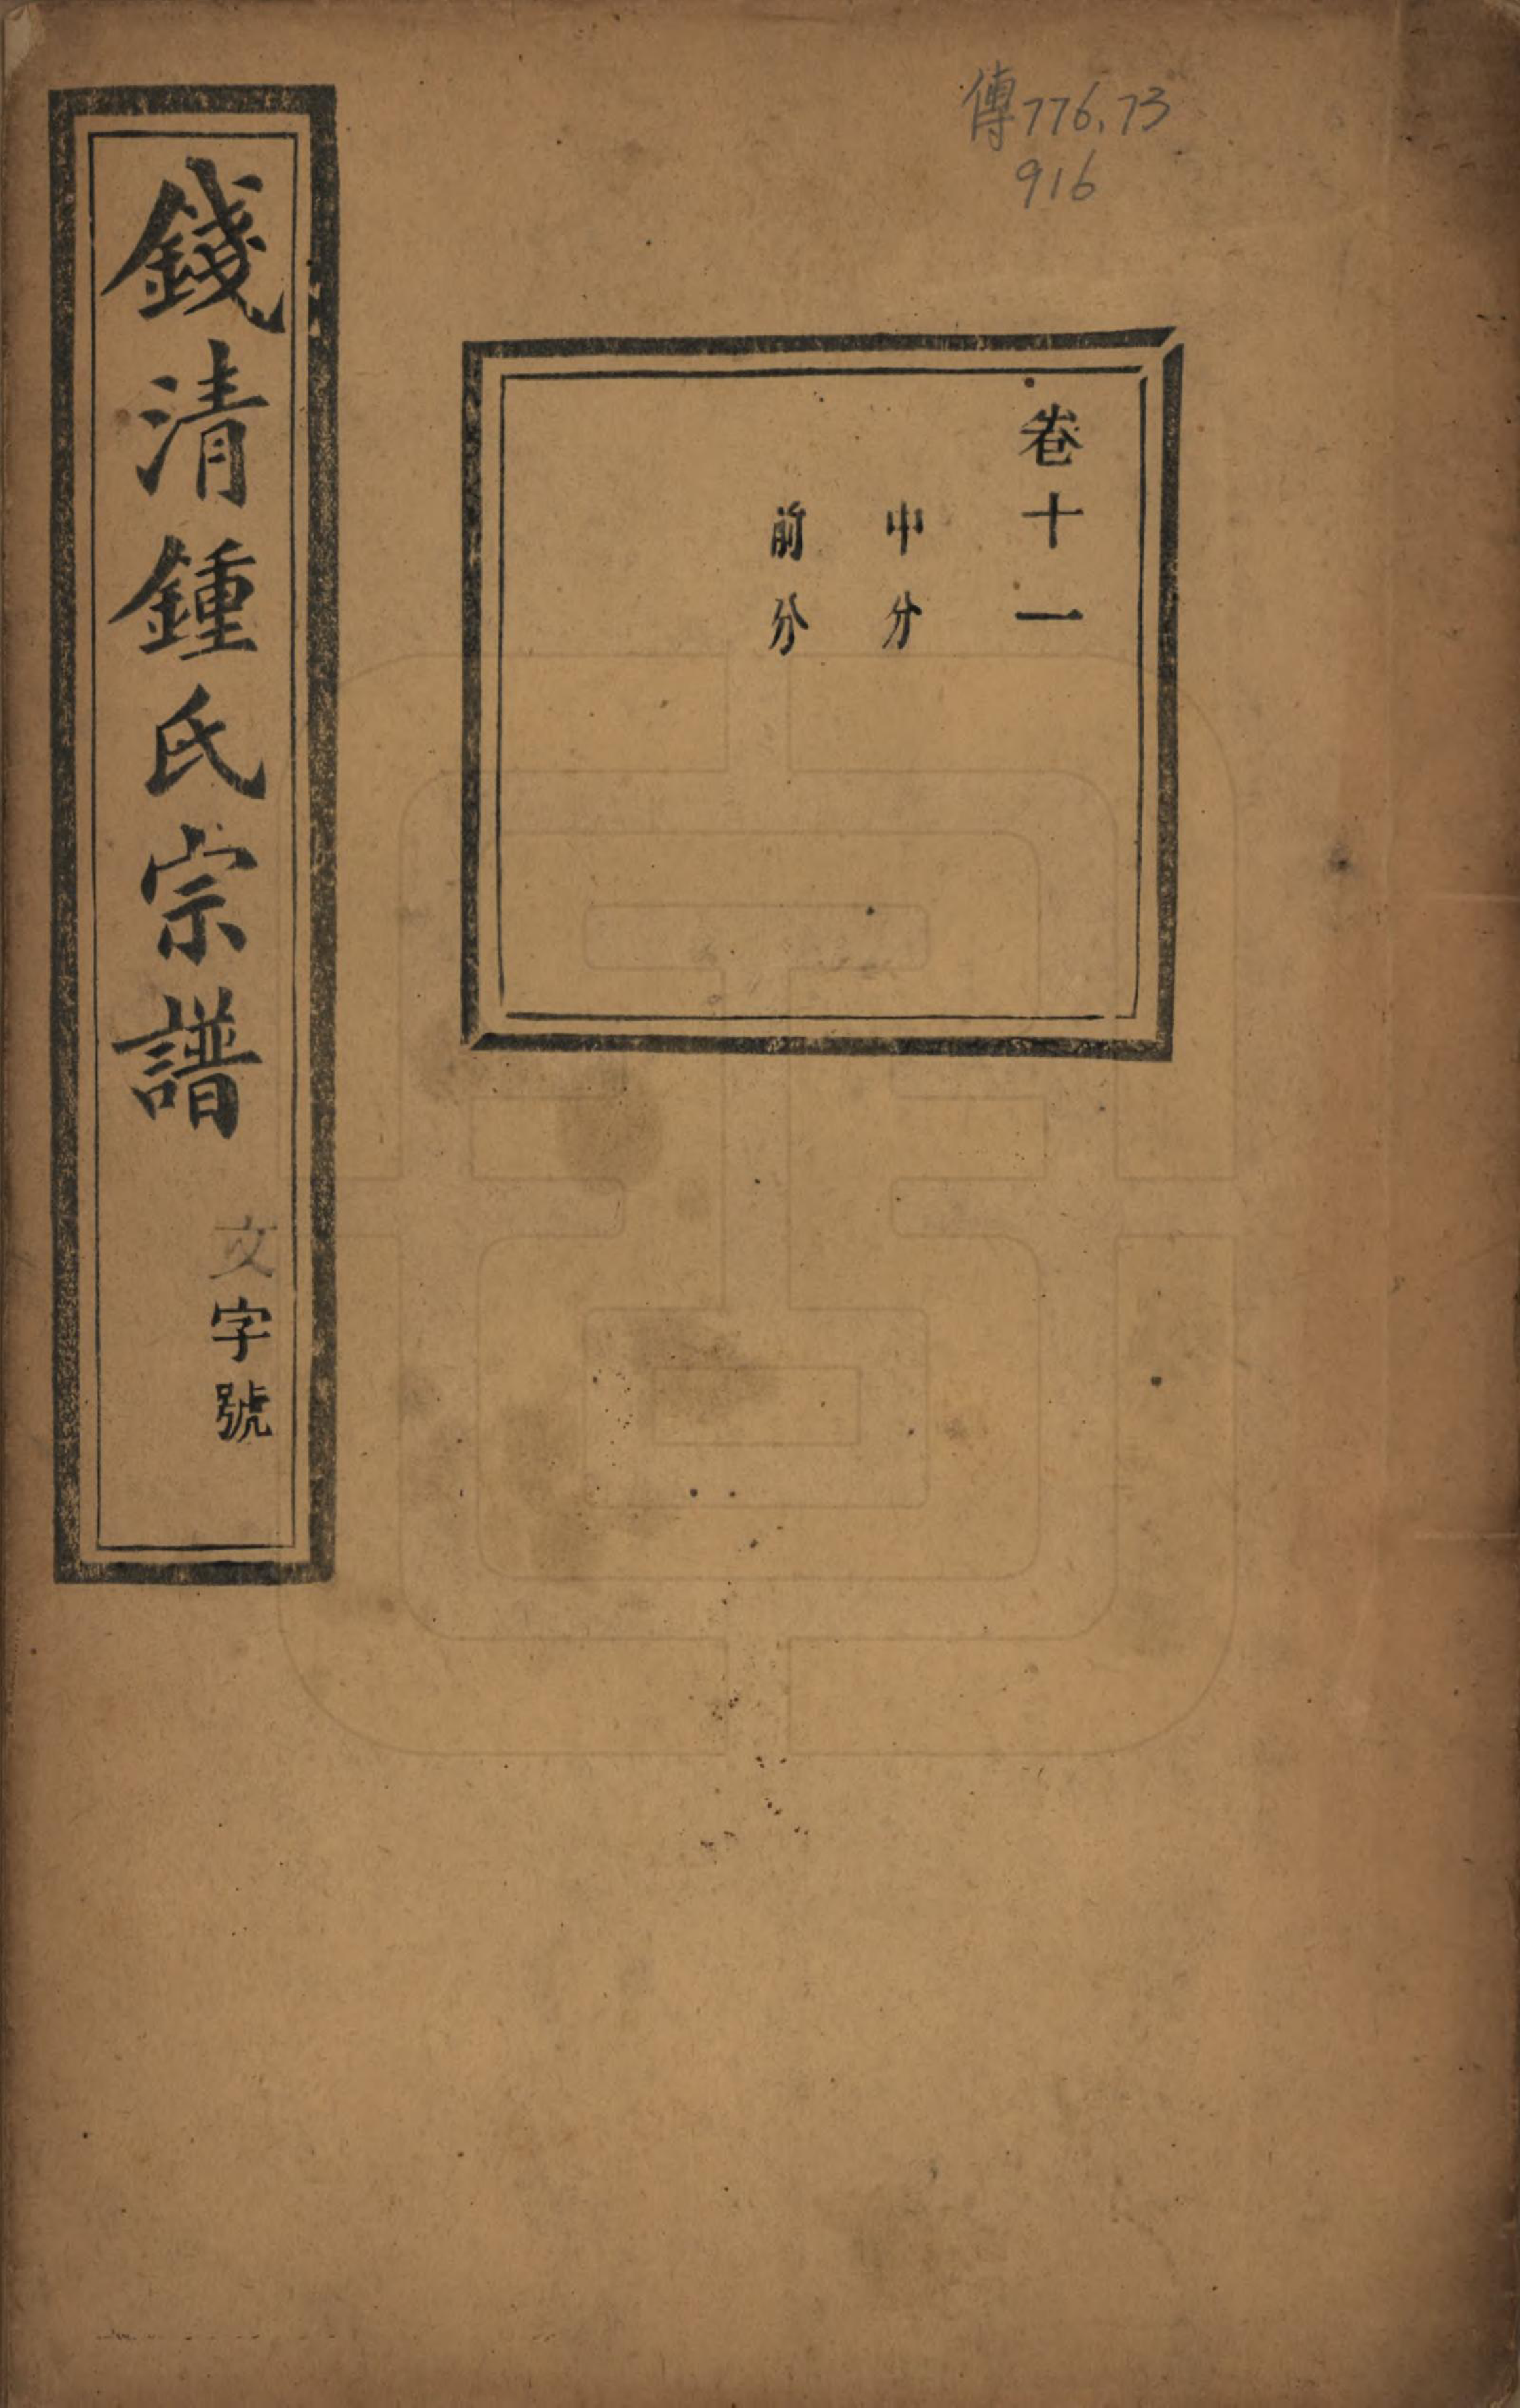 傳776.73
916
卷十一
中分
前分
錢清鍾氏宗譜
文字號